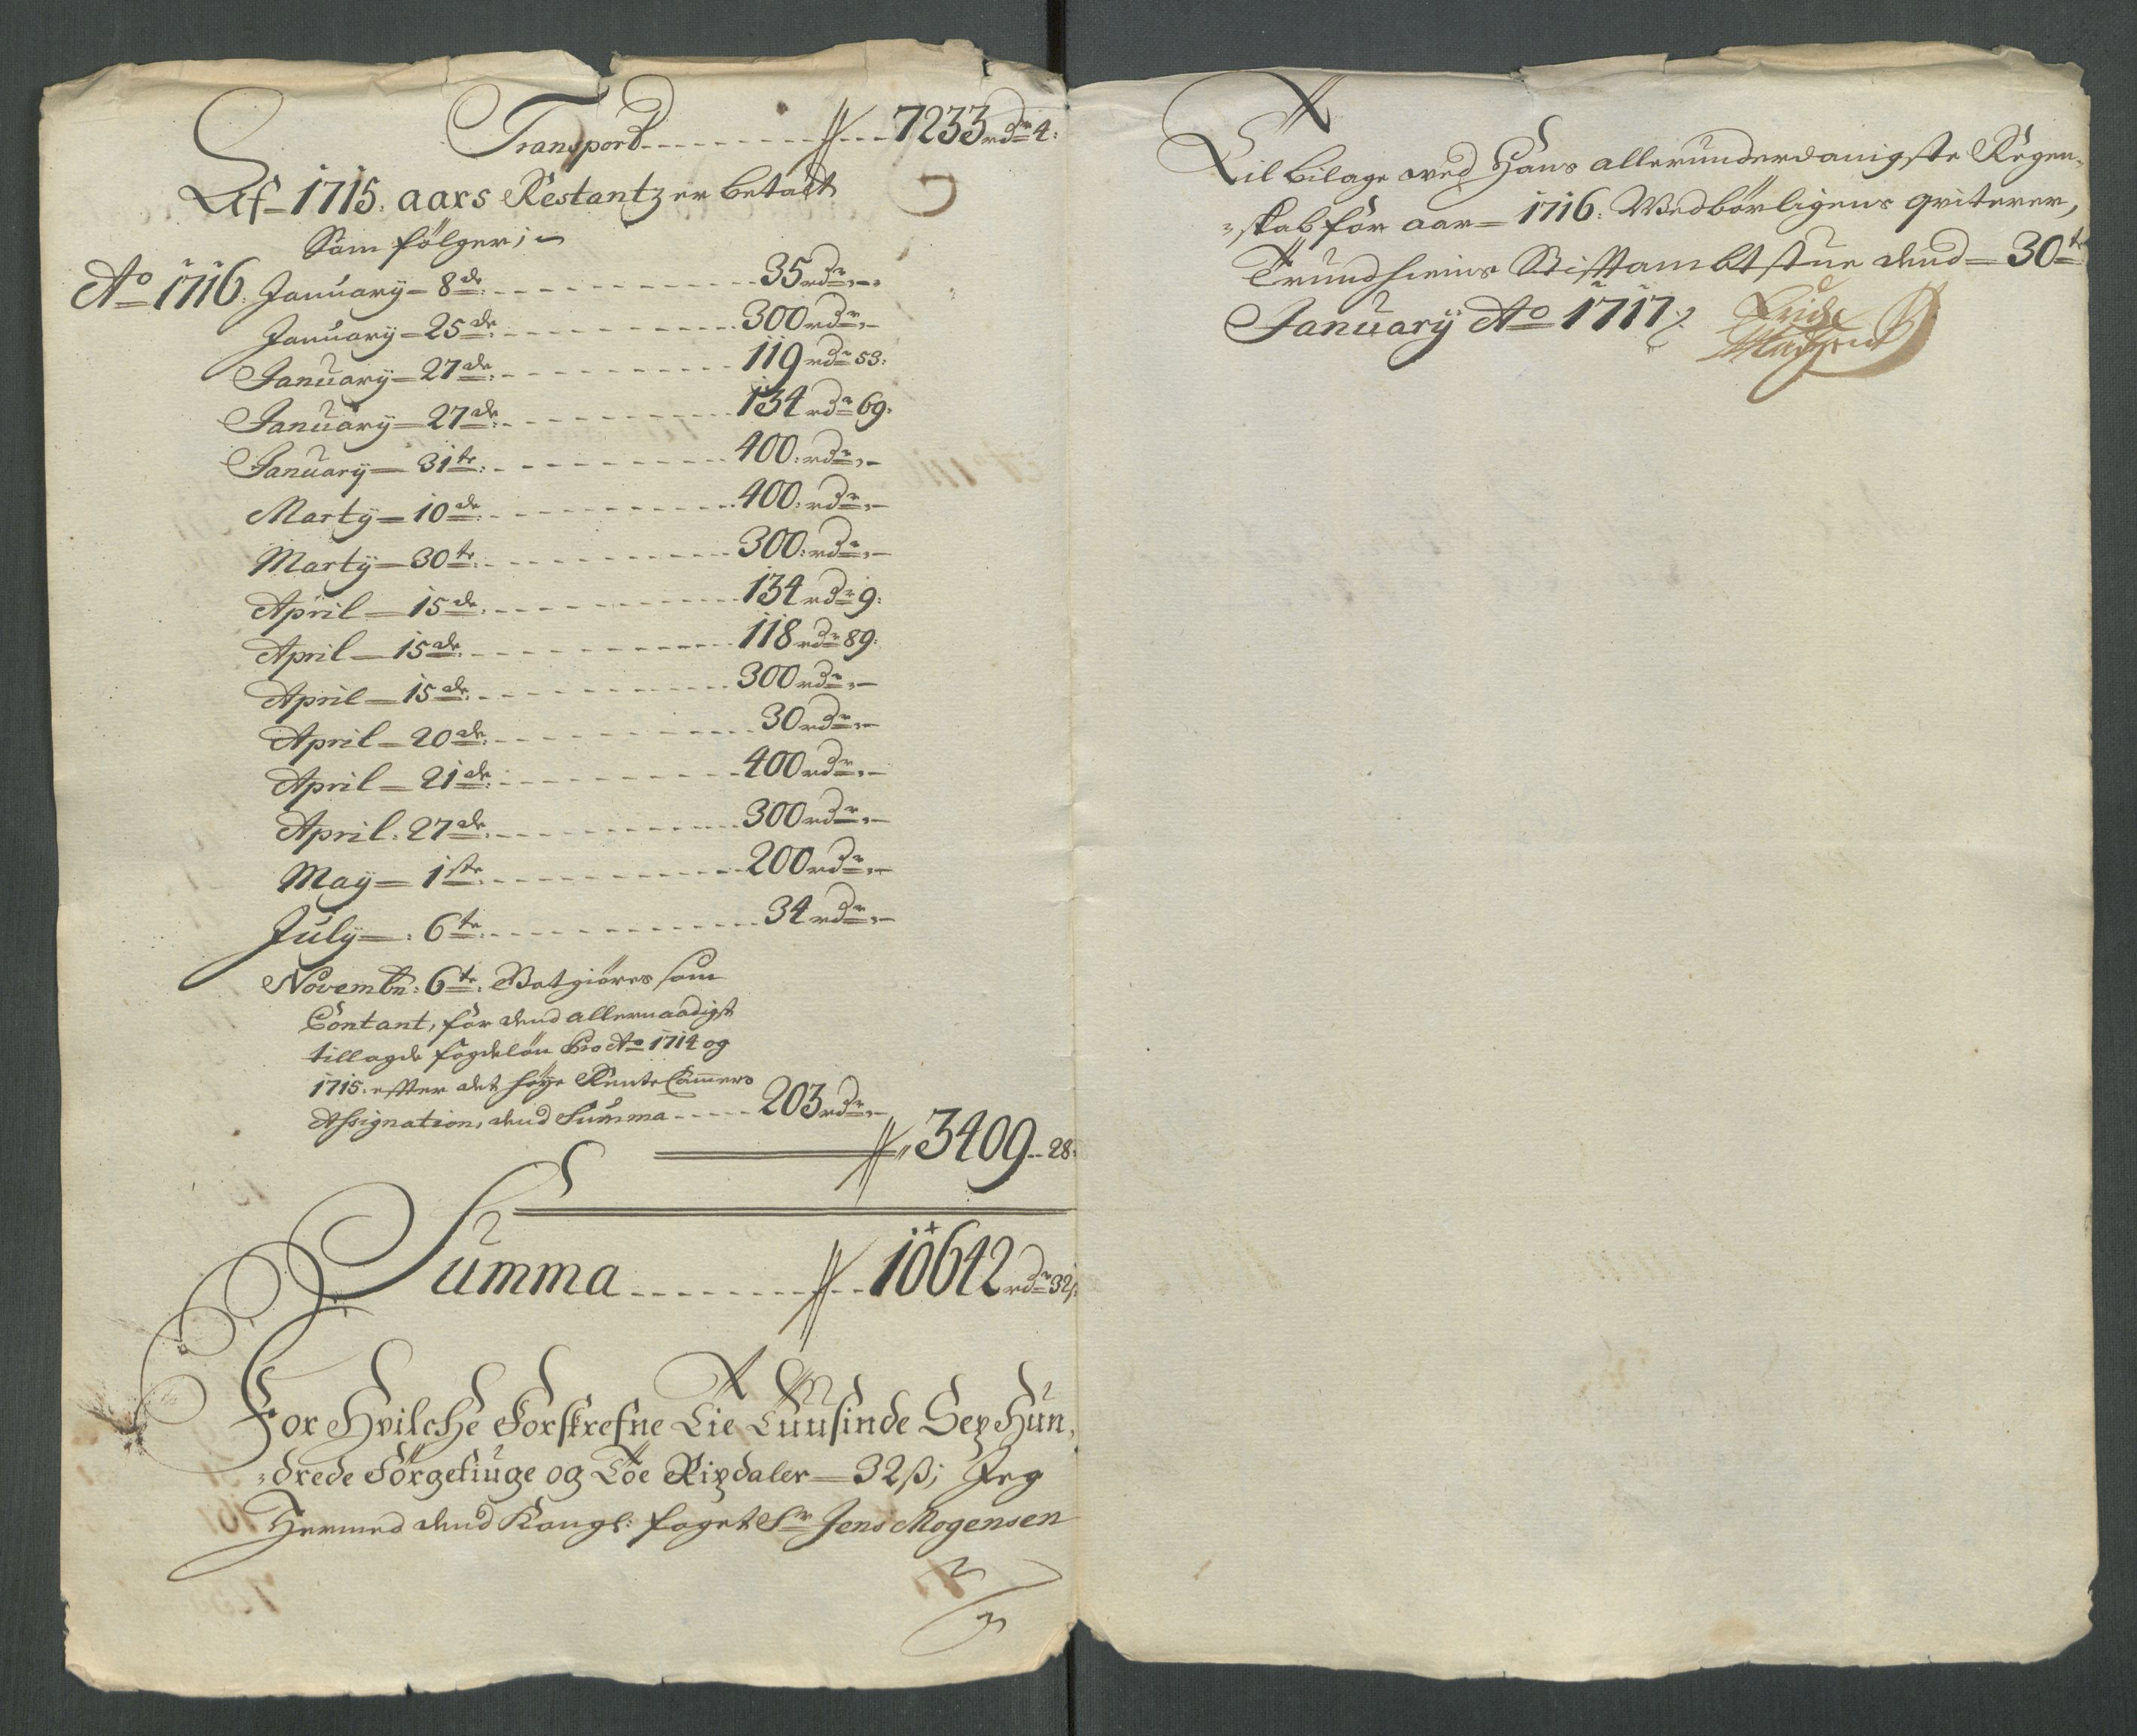 Transpord - - - - - - - - - 7233 rdr 4:
Af 1715. aars Restantz er betalt
Som følger; ~
Ao 1716. January 8de: - - - - - - - - - 35 rdr „-„
January 25de - - - - - - - - - 300 rdr „-
January 27de: - - - - - - - - - 119 rdr 53:
January 27de: - - - - - - - - - 134 rdr 69:
January 31te: - - - - - - - - - 400: rdr „-
Marty 10de: - - - - - - - - - 400: rdr „-
Marty 30te: - - - - - - - - - 300: rdr „-
April 15de: - - - - - - - - - 134 rdr 9:
April 15de: - - - - - - - - - 118 rdr 89:
April 15de: - - - - - - - - - 300 rdr „-
April 20de: - - - - - - - - - 30 rdr „-
April 21de: - - - - - - - - - 400 rdr „-
April. 27de: - - - - - - - - - 300 rdr „-
May 1ste: - - - - - - - - - 200 rdr „-
July : 6te: - - - - - - - - - 34 rdr „-
Novembr: 6te: Botgiøres som
Contant, for dend allernaadigst
tillagde fogdeløn Pro Ao 1714 og
1715. effter det høye Rente Cammers
Assignation, dend Summa - - - - - 203 rdr „-
3409 - - 28:
Summa - - - - - - - - 10642 rdr 32ß.
For Hvilche Forskrefne Tie Tuusinde Sex Hun,
drede Førgetiuge og Toe Rixdaler 32ß; Jeg
Hermed dend Kongl: foget Sr Jens Mogensen
Til bilage ved Hans allerunderdanigste Regen,
skab for aar 1716. Wedbørligens qviterer,
Trundhiems Stifftambtstue dend 30te
January Ao 1717